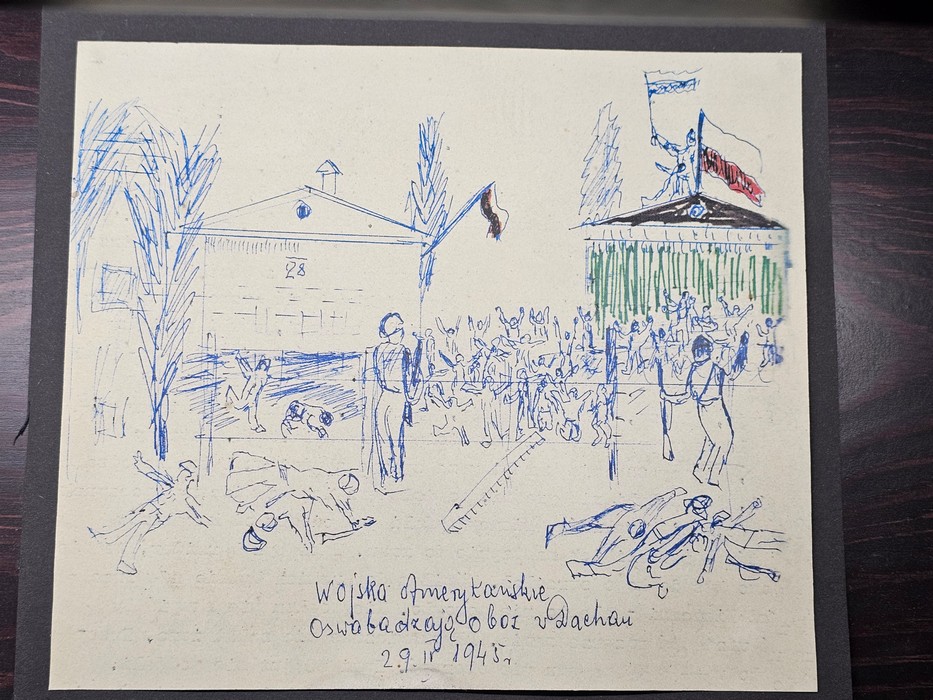 28
Wojska Amerykańskie
Oswabadzają Obóz w Dachau
29 IV 1945r